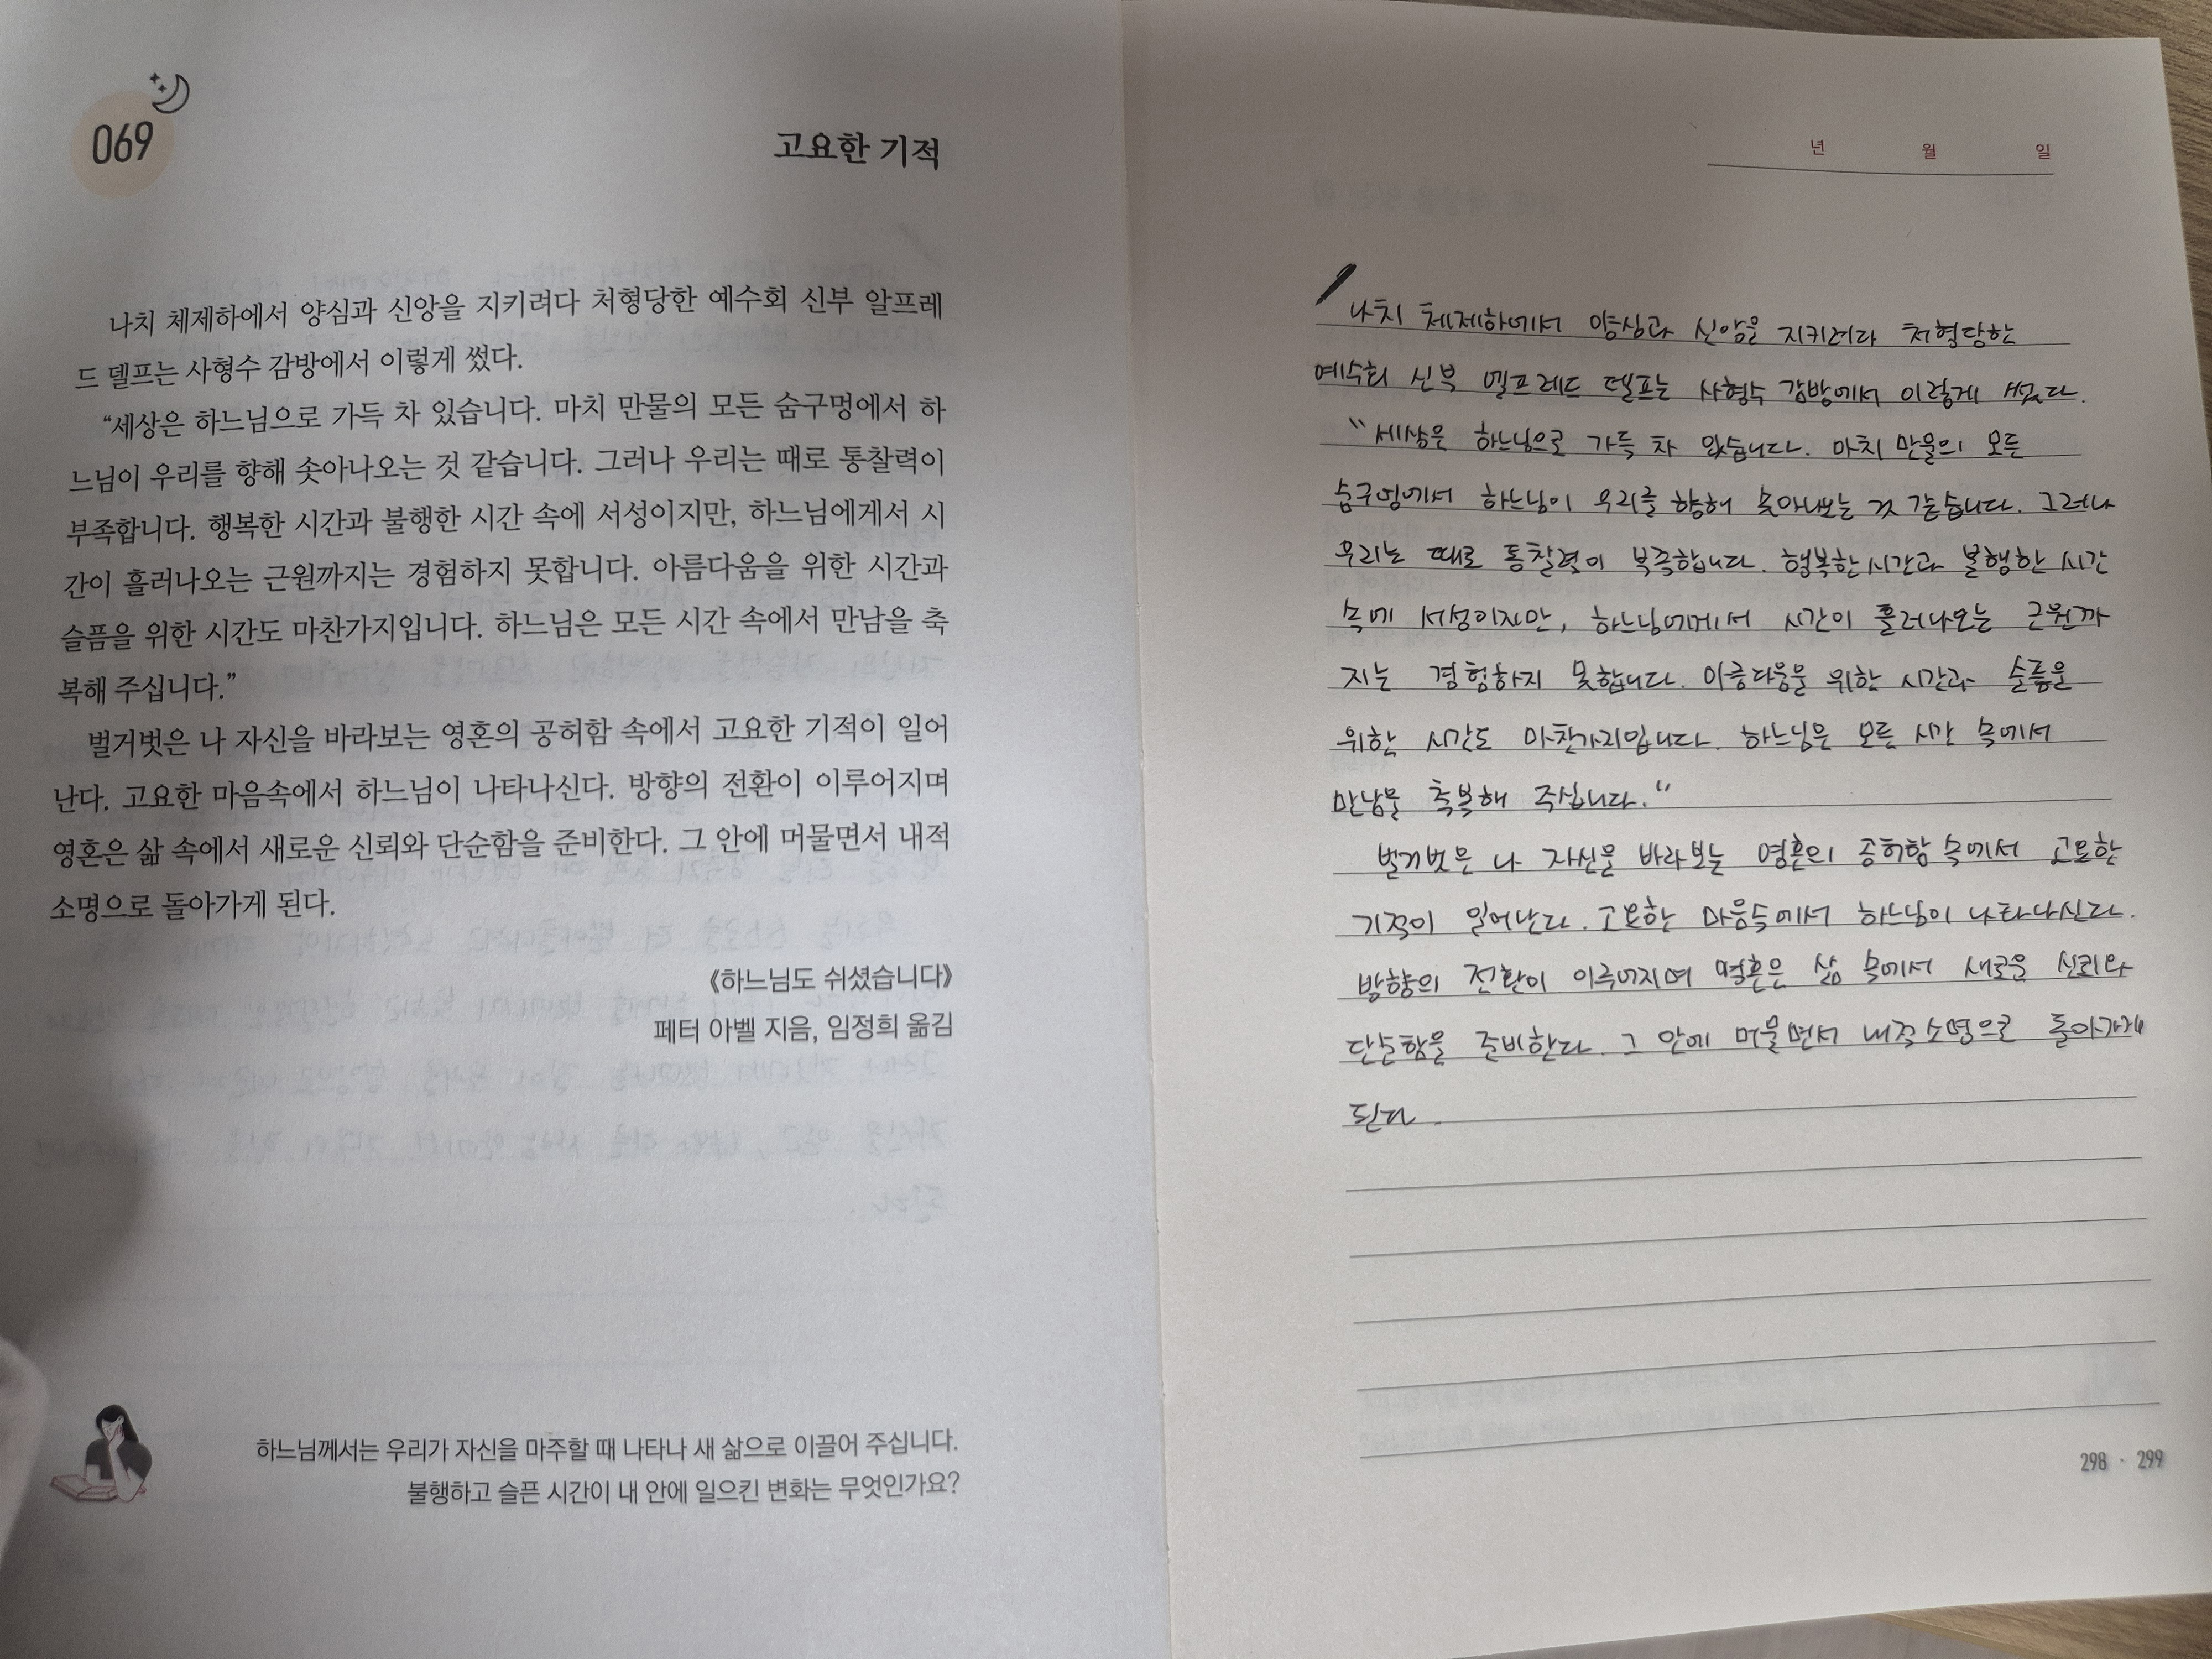 069
고요한 기적
나치 체제하에서 양심과 신앙을 지키려다 처형당한 예수회 신부 알프레
드 델프는 사형수 감방에서 이렇게 썼다.
“세상은 하느님으로 가득 차 있습니다. 마치 만물의 모든 숨구멍에서 하
느님이 우리를 향해 솟아나오는 것 같습니다. 그러나 우리는 때로 통찰력이
부족합니다. 행복한 시간과 불행한 시간 속에 서성이지만, 하느님에게서 시
간이 흘러나오는 근원까지는 경험하지 못합니다. 아름다움을 위한 시간과
슬픔을 위한 시간도 마찬가지입니다. 하느님은 모든 시간 속에서 만남을 축
복해 주십니다.”
벌거벗은 나 자신을 바라보는 영혼의 공허함 속에서 고요한 기적이 일어
난다. 고요한 마음속에서 하느님이 나타나신다. 방향의 전환이 이루어지며
영혼은 삶 속에서 새로운 신뢰와 단순함을 준비한다. 그 안에 머물면서 내적
소명으로 돌아가게 된다.
《하느님도 쉬셨습니다》
페터 아벨 지음, 임정희 옮김
하느님께서는 우리가 자신을 마주할 때 나타나 새 삶으로 이끌어 주십니다.
불행하고 슬픈 시간이 내 안에 일으킨 변화는 무엇인가요?
년 월 일
나치 체제하에서 양심과 신앙을 지키려다 처형당한
예수회 신부 델프레드 델프는 사형수 감방에서 이렇게 썼다.
“세상은 하느님으로 가득 차 있습니다. 마치 만물의 모든
숨구멍에서 하느님이 우리를 향해 솟아나오는 것 같습니다. 그러나
우리는 때로 통찰력이 부족합니다. 행복한 시간과 불행한 시간
속에 서성이지만, 하느님에게서 시간이 흘러나오는 근원까
지는 경험하지 못합니다. 아름다움을 위한 시간과 슬픔을
위한 시간도 마찬가지입니다. 하느님은 모든 시간 속에서
만남을 축복해 주십니다.“
벌거벗은 나 자신을 바라보는 영혼의 공허함 속에서 고요한
기적이 일어난다. 고요한 마음속에서 하느님이 나타나신다.
방향의 전환이 이루어지며 영혼은 삶 속에서 새로운 신뢰와
단순함을 준비한다. 그 안에 머물면서 내적 소명으로 돌아가게
된다.
298 · 299